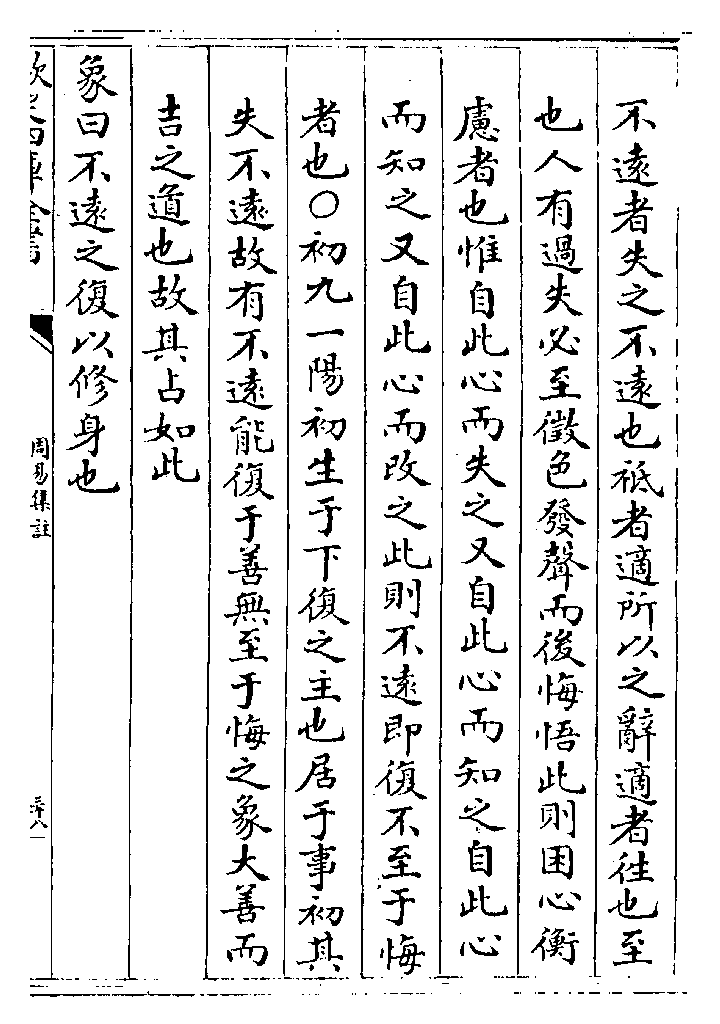 不遠者失之不遠也祗者適所以之辭適者往也至
也人有過失必至徵色發聲而後悔悟此則困心衡
慮者也惟自此心而失之又自此心而知之自此心
而知之又自此心而改之此則不遠即復不至于悔
者也○初九一陽初生于下復之主也居于事初其
失不遠故有不遠能復于善無至于悔之象大善而
吉之道也故其占如此
象曰不遠之復以修身也
欽定四庫全書
周易集註
三十八